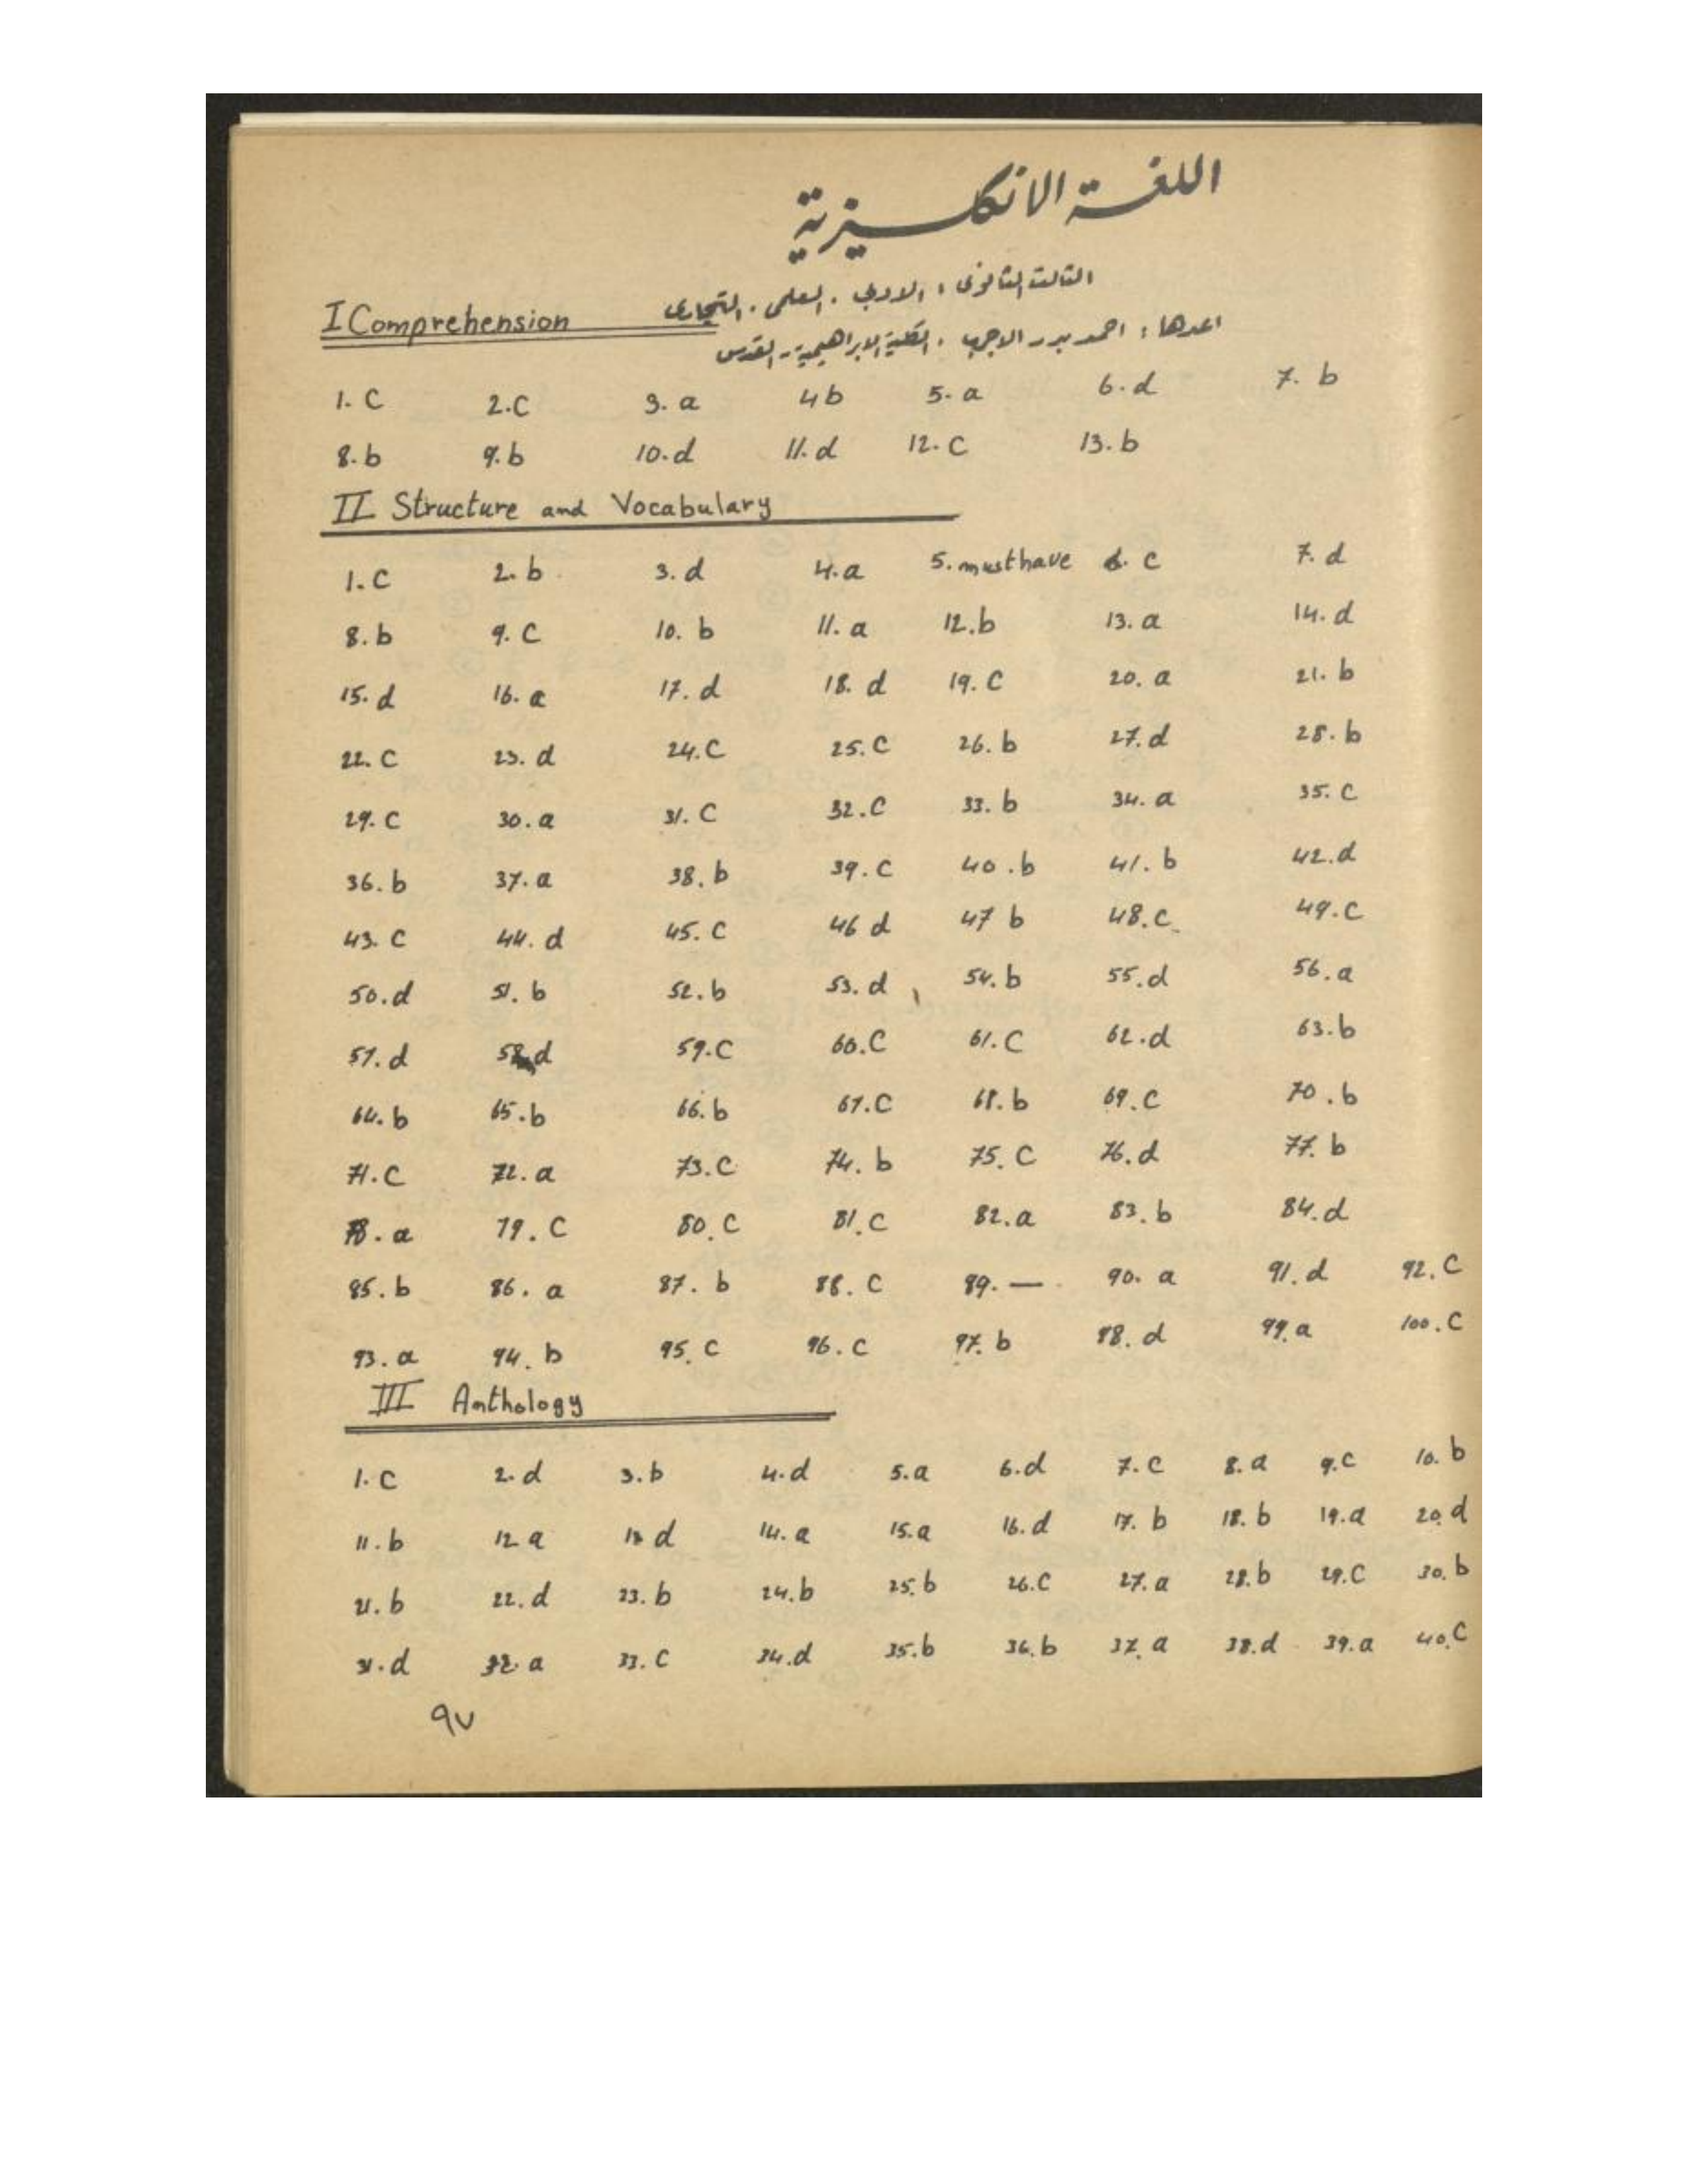 اللغة الانكليزية
الثالث الثانوي : الادبي . العلمي . التجاري
I Comprehension
اعدها : احمد بدر الاجرب . الكلية الابراهيمية - القدس
1. C 2. C 3. a 4 b 5. a 6. d 7. b
8. b 9. b 10. d 11. d 12. C 13. b
II Structure and Vocabulary
1. C 2. b 3. d 4. a 5. must have 6. C 7. d
8. b 9. C 10. b 11. a 12. b 13. a 14. d
15. d 16. a 17. d 18. d 19. C 20. a 21. b
22. C 23. d 24. C 25. C 26. b 27. d 28. b
29. C 30. a 31. C 32. C 33. b 34. a 35. C
36. b 37. a 38. b 39. C 40. b 41. b 42. d
43. C 44. d 45. C 46 d 47 b 48. C 49. C
50. d 51. b 52. b 53. d 54. b 55. d 56. a
57. d 58 d 59. C 60. C 61. C 62. d 63. b
64. b 65. b 66. b 67. C 68. b 69. C 70. b
71. C 72. a 73. C 74. b 75. C 76. d 77. b
78. a 79. C 80. C 81. C 82. a 83. b 84. d
85. b 86. a 87. b 88. C 89. — 90. a 91. d 92. C
93. a 94. b 95. C 96. C 97. b 98. d 99. a 100. C
III Anthology
1. C 2. d 3. b 4. d 5. a 6. d 7. C 8. a 9. C 10. b
11. b 12 a 13 d 14. a 15. a 16. d 17. b 18. b 19. a 20. d
21. b 22. d 23. b 24. b 25. b 26. C 27. a 28. b 29. C 30. b
31. d 32. a 33. C 34. d 35. b 36. b 37. a 38. d 39. a 40. C
٩٧